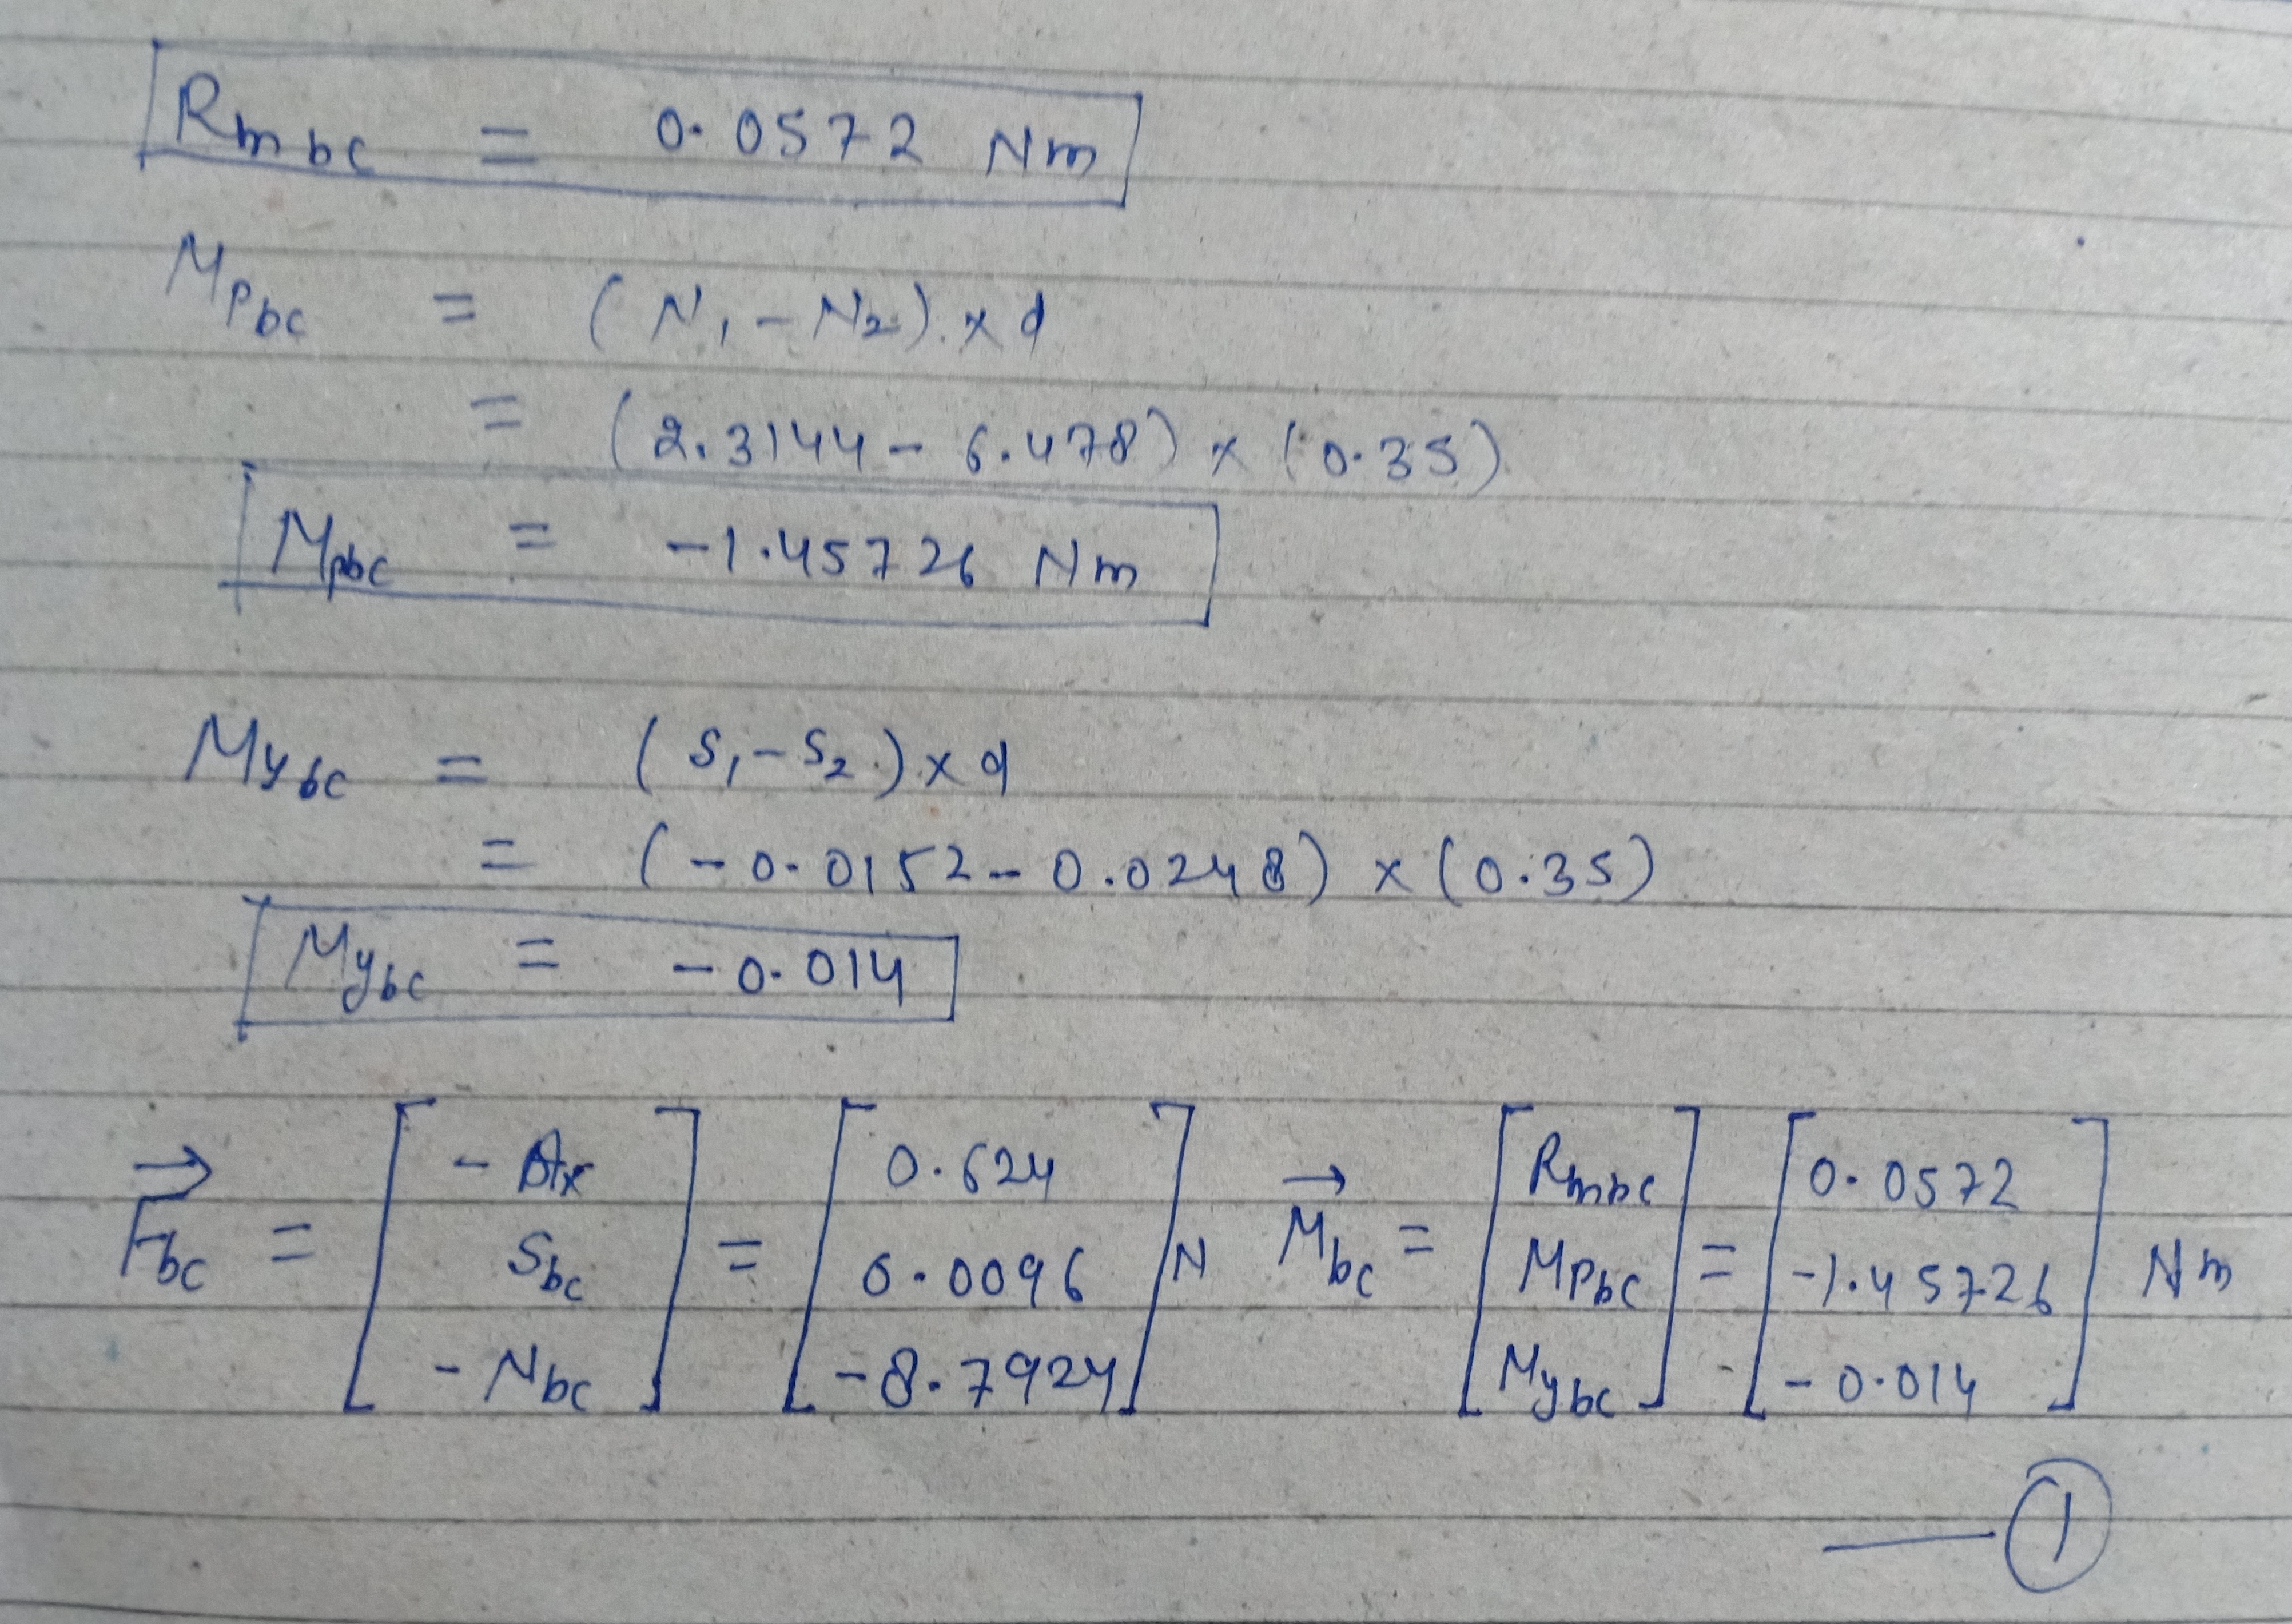 Rmbc = 0.0572 Nm
Mpbc = (N1 - N2) x d
= (2.3144 - 6.478) x (0.35)
Mpbc = -1.45726 Nm
Mybc = (S1 - S2) x d
= (-0.0152 - 0.0248) x (0.35)
Mybc = -0.014
Fbc = [-Ax Sbc -Nbc] = [0.624 0.0096 -8.7924] N Mbc = [Rmbc Mpbc Mybc] = [0.0572 -1.45726 -0.014] Nm
— 1